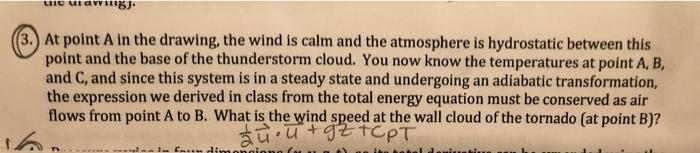 the drawing).
3. At point A in the drawing, the wind is calm and the atmosphere is hydrostatic between this
point and the base of the thunderstorm cloud. You now know the temperatures at point A, B,
and C, and since this system is in a steady state and undergoing an adiabatic transformation,
the expression we derived in class from the total energy equation must be conserved as air
flows from point A to B. What is the wind speed at the wall cloud of the tornado (at point B)?
½ u⃗·u⃗ + gz + CpT